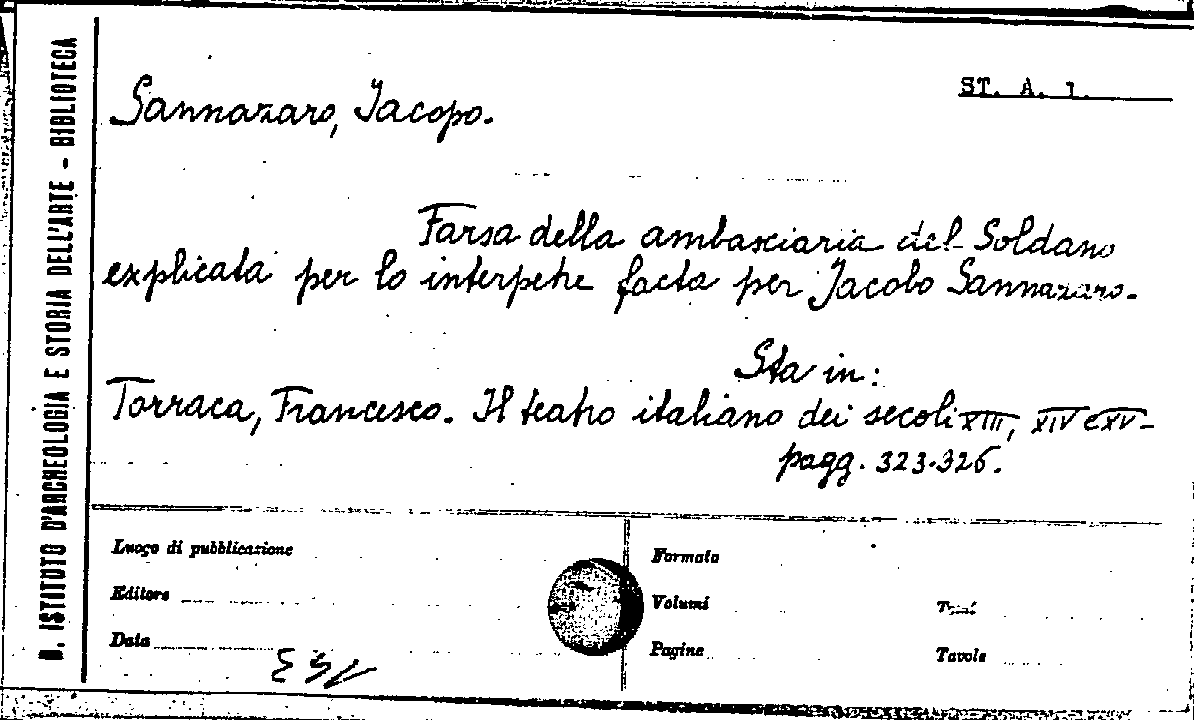 R. ISTITUTO D'ARCHEOLOGIA E STORIA DELL'ARTE - BIBLIOTECA
ST. A. 1.
Sannazaro, Jacopo.
Farsa della ambasciaria del Soldano
explicata per lo interpetre facta per Jacobo Sannazaro.
Sta in:
Torraca, Francesco. Il teatro italiano dei secoli XIII, XIV e XV-
pagg. 323-326.
Luogo di pubblicazione
Editore
Data
Formato
Volumi
Pagine
Tomi
Tavole